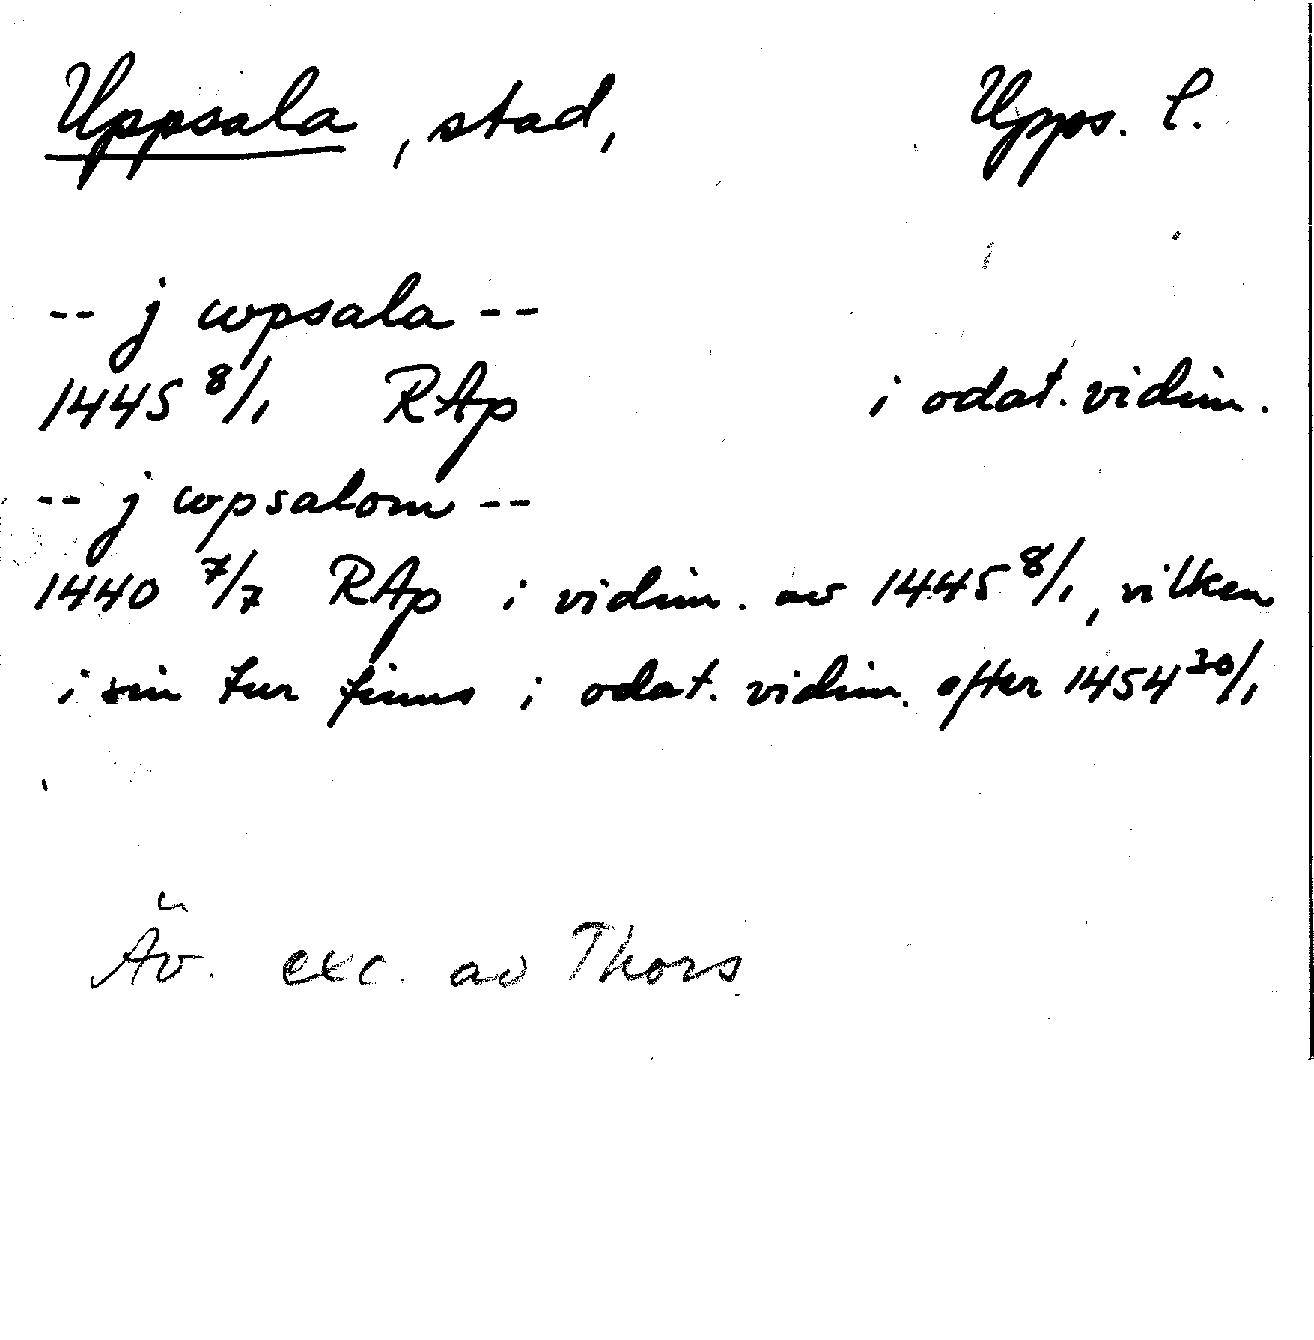 Uppsala, stad, Upps. l.
-- j wpsala --
1445 8/1 RAp i odat. vidim.
-- j wpsalom --
1440 7/7 RAp i vidim. av 1445 8/1, vilken
i sin tur finns i odat. vidim. efter 1454 30/1
Äv. exc. av Thors